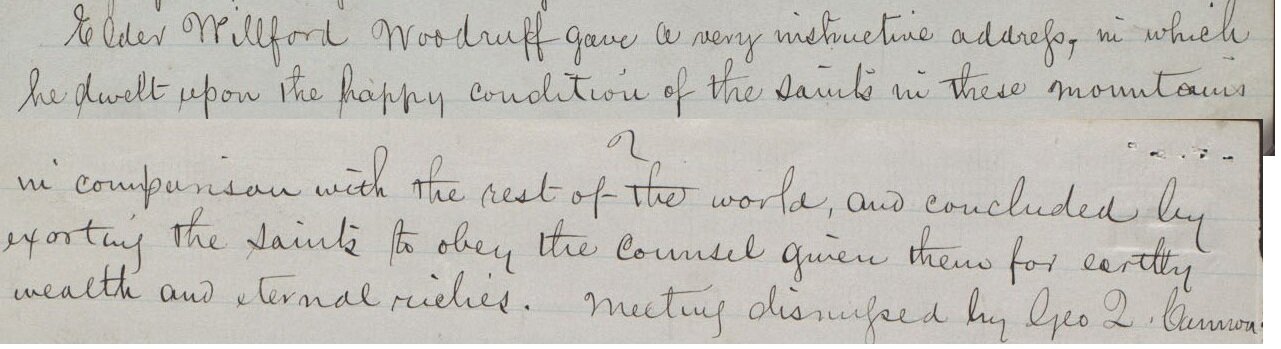 Elder Willford Woodruff gave a very instructive address, in which
he dwelt upon the happy condition of the saints in these mountains
2
in comparison with the rest of the world, and concluded by
exorting the saints to obey the Counsel given them for earthly
wealth and eternal riches. Meeting dismissed by Geo Q. Cannon.